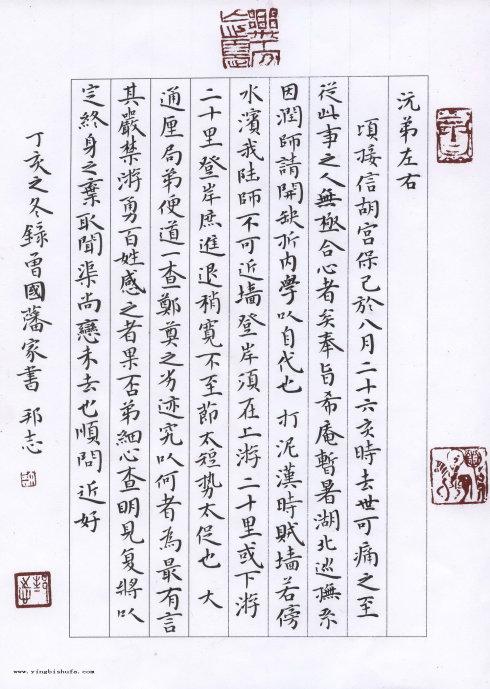 沅弟左右
頃接信胡宫保已於八月二十六亥時去世可痛之至
從此事之人無極合心者矣奉旨希庵暫署湖北巡撫系
因潤師請開缺折内學以自代也 打泥漢時賊墙若傍
水濱我陆師不可近墙登岸須在上游二十里或下游
二十里登岸庶進退稍寬不至節太短勢太促也 大
通厘局弟便道一查鄭奠之劣迹究以何者為最有言
其嚴禁游勇百姓感之者果否弟細心查明見复將以
定終身之棄取聞渠尚戀未去也順問 近好
丁亥之冬錄曾國藩家書 邦志
www.yingbishufa.com